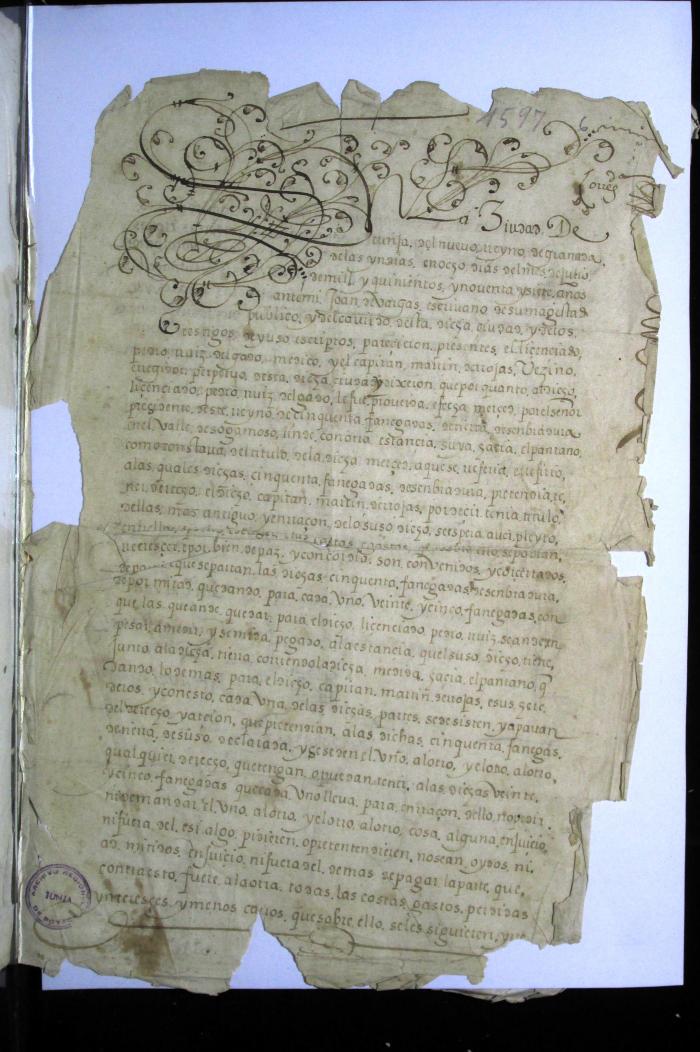 1597 6
a Ziudad De
tunja, del nuevo, rreyno, de granada,
de las yndias, en oczo, dias del mes, de jullio,
de mill, y quinientos, y noventa y siete, años
ante mi, Joan, de Vargas, escrivano de su magestad
publico, y del cavildo, desta, dicza, ciudad, y de los,
testigos, de yuso escriptos, parecieron, presentes, el licenciado,
pedro, rruiz, delgado, medico, y el capitan, martin, de rrojas, Vezino,
rregidor, perpetuo, desta, dicza, ciudad, y dixeron, que por quanto, al diczo,
licenciado, pedro, rruiz, delgado, le fue, proveida, e fecza, merced, por el señor
presidente, deste, rreyno, de cinquenta, fanegadas, de tierra, de senbradura
en el valle, de sogamoso, linde, con otra, estancia, suya, zacia, el pantano,
como constava, del titulo, de la dicza, merced, a que se, rreferia, e rrefirio,
a las, quales diczas, cinquenta, fanegadas, de senbradura, pretendia, te
ner, dereczo, el diczo, capitan, martin, de rrojas, por decir, tenia, titulo,
dellas, mas, antiguo, y en rraçon, de lo suso, diczo, se espera, aver, pleyto,
se podian,
rrecrescer, e por, bien de paz, y concordia, son, convenidos, y concertados,
que se partan, las diczas, cinquenta, fanegadas, de senbradura,
de por mitad, quedando, para, cada, uno, veinte, y cinco, fanegadas, con
que, las, que an de, quedar, para, el diczo, licenciado, pedro, rruiz, se an de en
pesar, a medir, y se mida, pegado, a la estancia, quel suso, diczo, tiene,
junto, a la dicza, tierra, corriendo la dicza, medida, zacia, el pantano, q
dando, lo demas, para, el diczo, capitan, martin, de rrojas, e sus, zere,
deros, y con esto, cada, una, de las, diczas, partes, se desisten, y apartan
del derecho, y ation, que pretendian, a las, dichas, cinquenta, fanegas,
de tierra, de suso, declarada, y ceden el uno, al otro, y el otro, al otro,
qualquier, derecho, que tengan, o puedan, tener, a las, diczas veinte,
y cinco, fanegadas que cada, uno lleva, para, en rraçon, dello, no pedir,
ni demandar, el uno, al otro, y el otro, al otro, cosa, alguna, en juicio,
ni fuera, del, e si, algo, pidieren, o pretendieren, no sean, oydos, ni,
admitidos, en juicio, ni fuera del, demas, de pagar, la parte, que,
contra esto, fuere, a la otra, todas, las costas, gastos, perdidas
yntereses, y menos cavos, que sobre, ello, se les siguieren, y
ARCHIVO REGIONAL
TUNJA